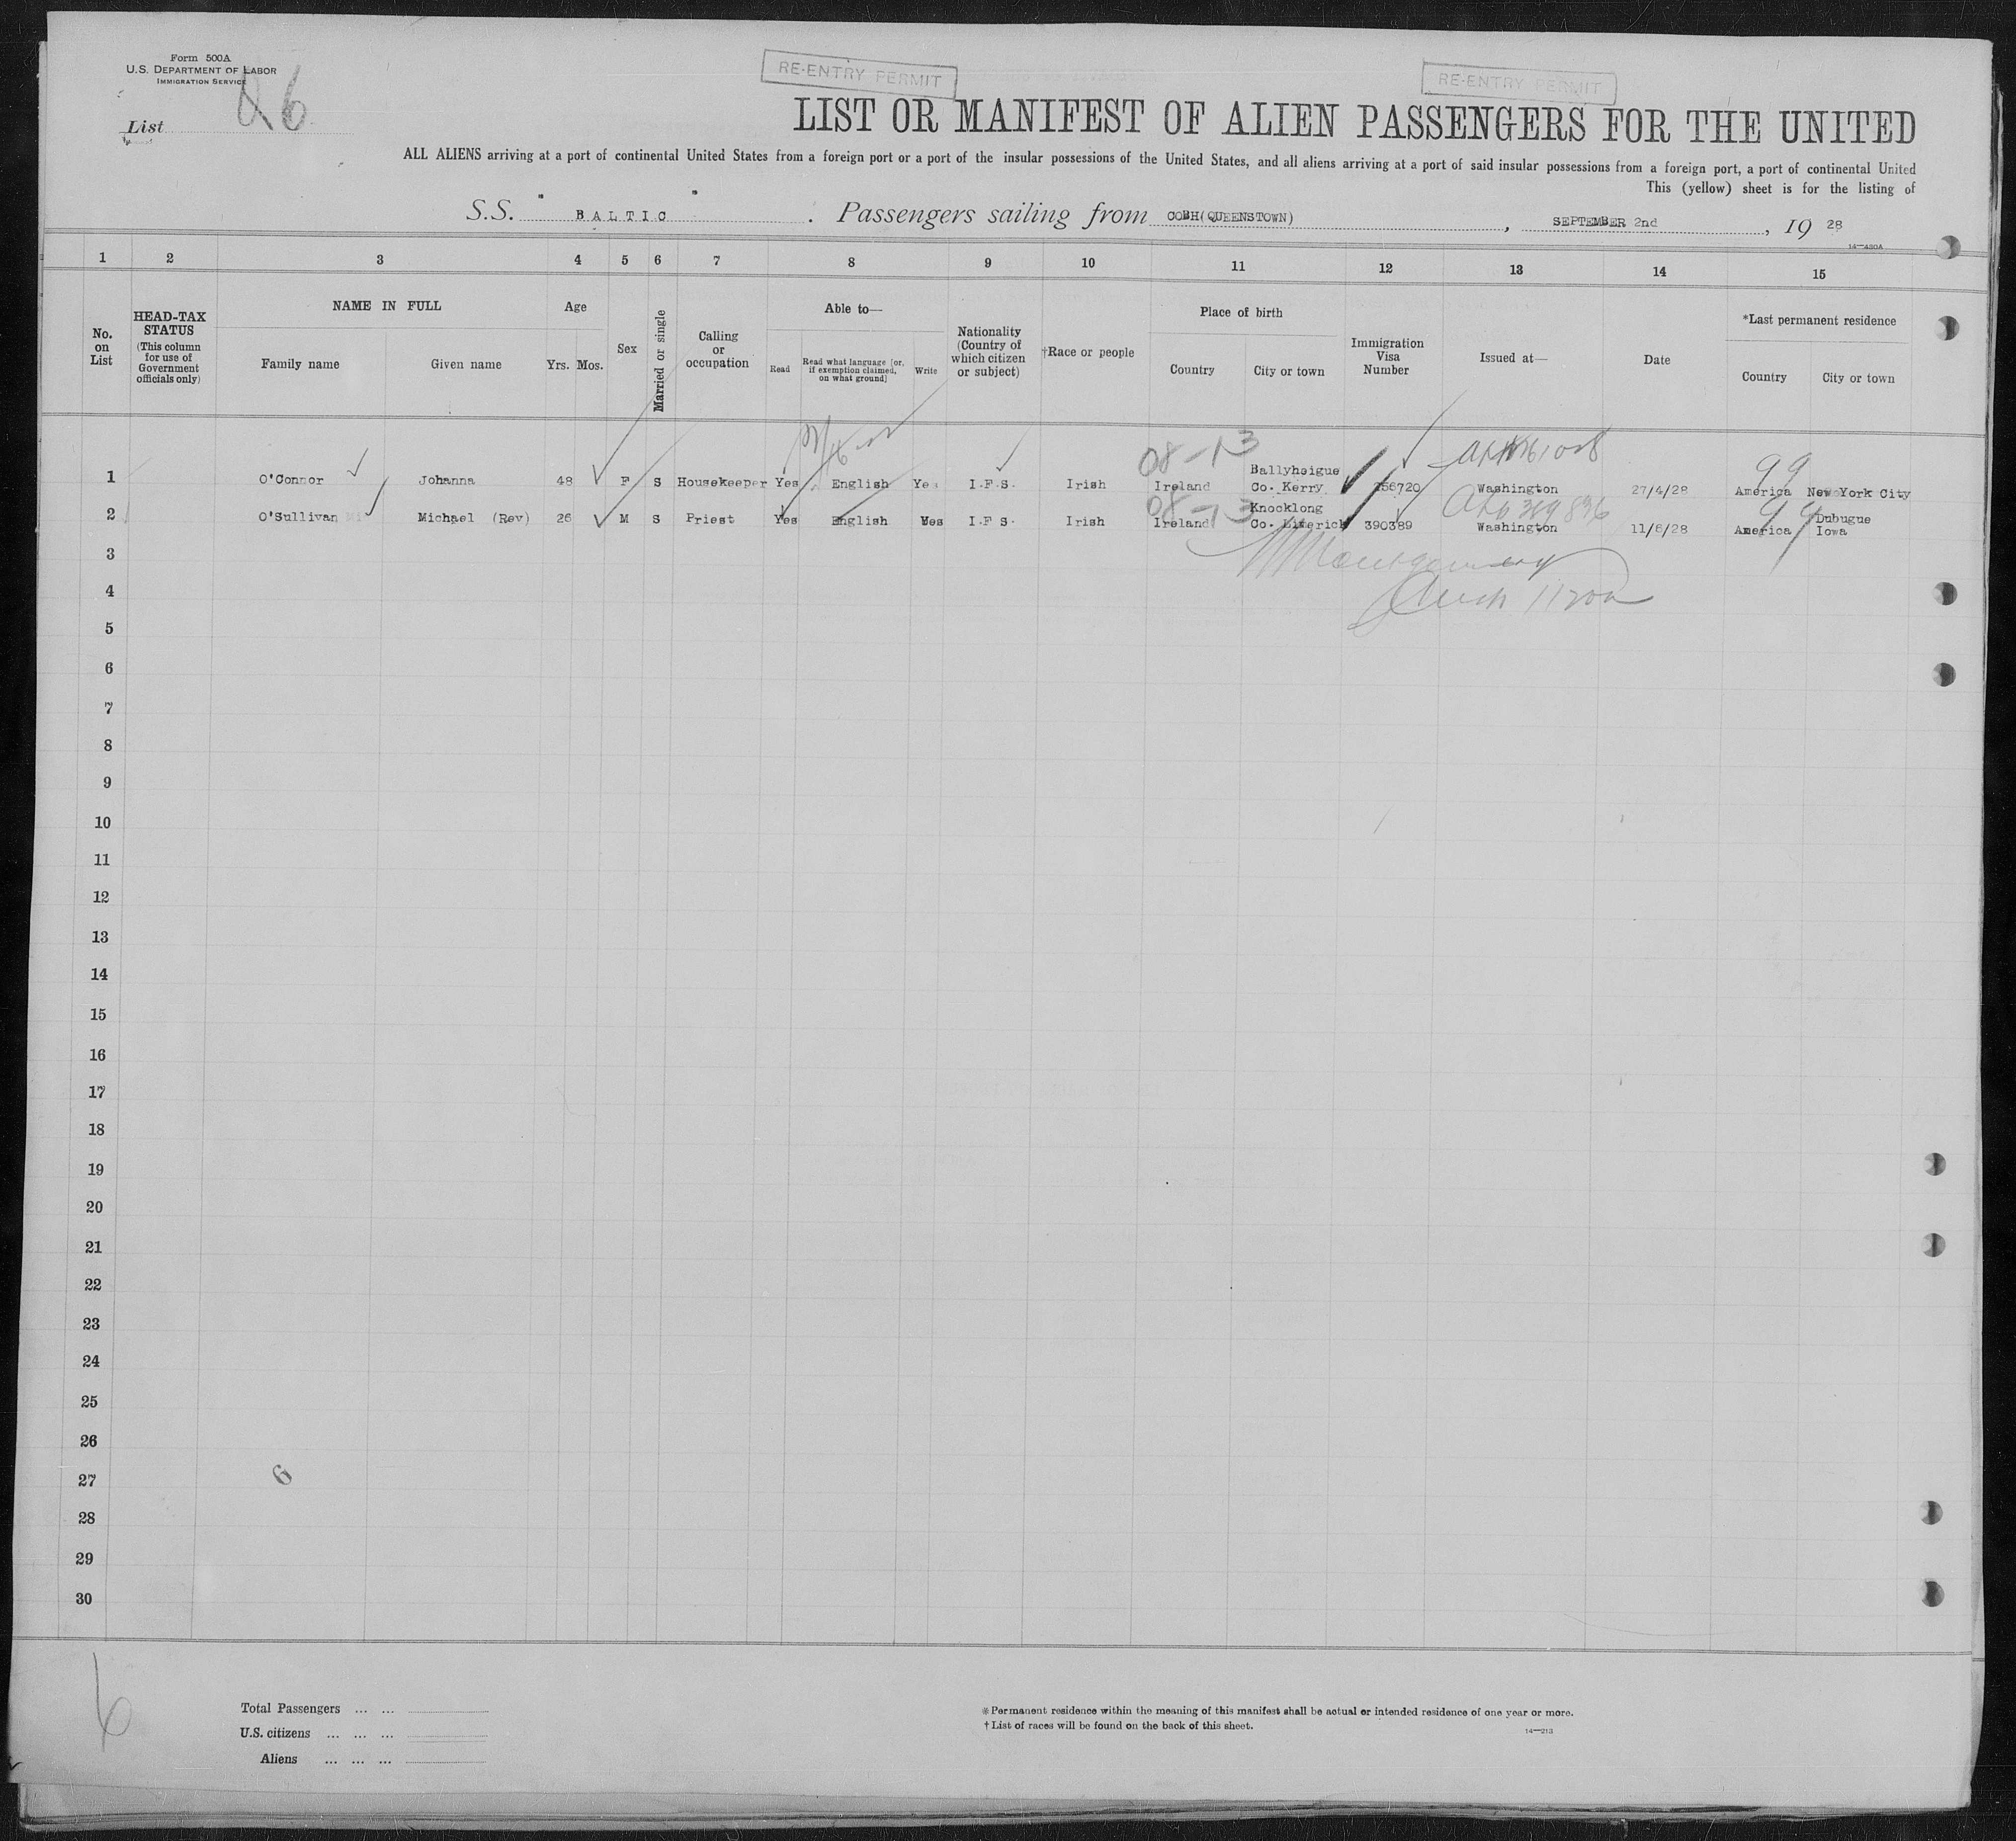 Form 500A
U.S. DEPARTMENT OF LABOR
IMMIGRATION SERVICE
RE-ENTRY PERMIT
RE-ENTRY PERMIT
List 26
LIST OR MANIFEST OF ALIEN PASSENGERS FOR THE UNITED
ALL ALIENS arriving at a port of continental United States from a foreign port or a port of the insular possessions of the United States, and all aliens arriving at a port of said insular possessions from a foreign port, a port of continental United
This (yellow) sheet is for the listing of
S.S. " BALTIC " . Passengers sailing from COBH(QUEENSTOWN) , SEPTEMBER 2nd , 19 28
14—430A
1 2 3 4 5 6 7 8 9 10 11 12 13 14 15
No. on List
HEAD-TAX STATUS
(This column for use of Government officials only)
NAME IN FULL
Family name Given name
Age
Yrs. Mos.
Sex
Married or single
Calling or occupation
Able to—
Read
Read what language [or, if exemption claimed, on what ground]
Write
Nationality (Country of which citizen or subject)
†Race or people
Place of birth
Country City or town
Immigration Visa Number
Issued at—
Date
*Last permanent residence
Country City or town
08-13
99
1 O'Connor Johanna 48 F S Housekeeper Yes English Yes I.F.S. Irish Ireland Ballyheigue Co. Kerry 156720 Washington 27/4/28 America New York City
08-13
99
2 O'Sullivan Michael (Rev) 26 M S Priest Yes English Yes I.F S. Irish Ireland Knocklong Co. Limerick 390389 Washington 11/6/28 America Dubugue Iowa
3
4
5
6
7
8
9
10
11
12
13
14
15
16
17
18
19
20
21
22
23
24
25
26
27
6
28
29
30
6
Total Passengers ... ...
U.S. citizens ... ... ...
Aliens ... ... ...
* Permanent residence within the meaning of this manifest shall be actual or intended residence of one year or more.
† List of races will be found on the back of this sheet.
14—213